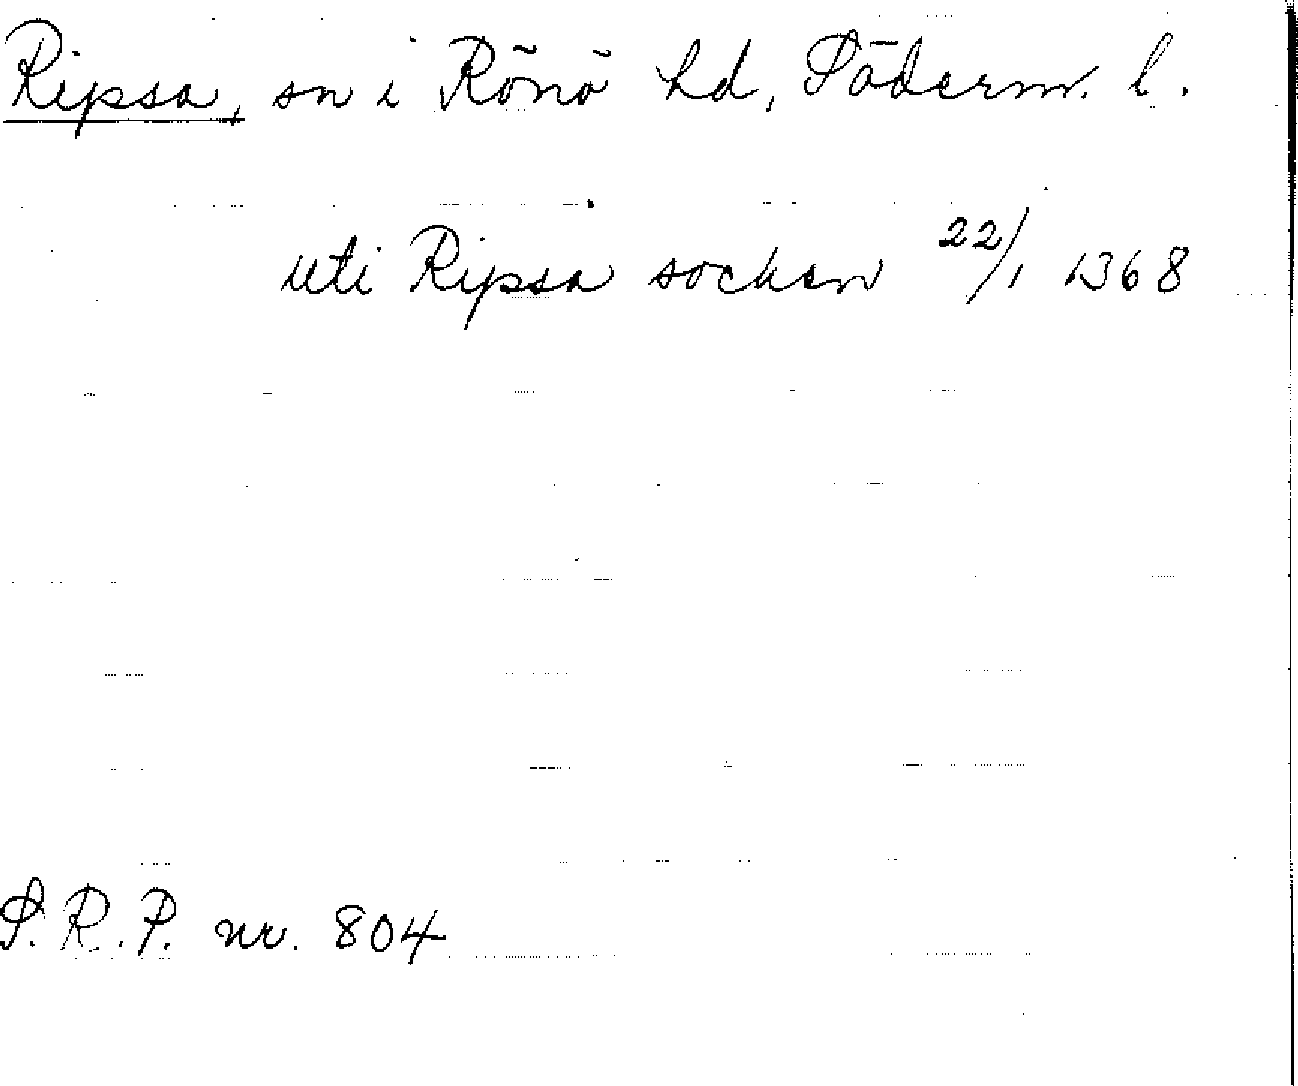 Ripsa, sn i Rönö hd, Söderm. l.
uti Ripsa socken 22/1 1368
S.R.P. nr. 804